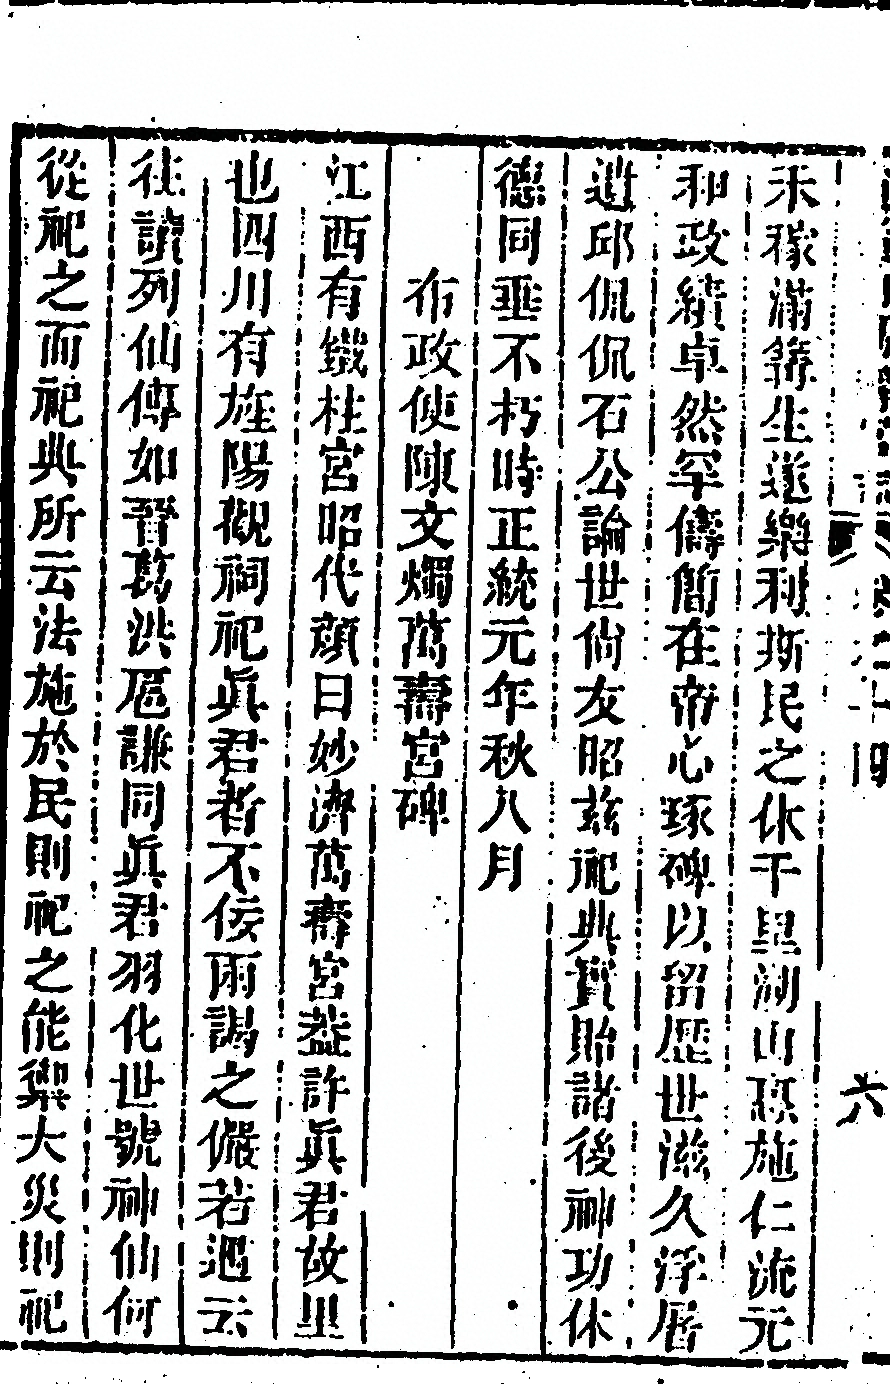 禾稼滿篝生遂樂利斯民之休千里湖山惠施仁流元
和政績卓然罕儔簡在帝心琢碑以留歷世滋久浮厝
遒邱侃侃石公論世尙友昭茲祀典寶貽諸後神功休
德同垂不朽時正統元年秋八月
布政使陳文燭萬壽宮碑
江西有鐵柱宮昭代額曰妙濟萬壽宮葢許眞君故里
也四川有旌陽觀祠祀眞君者不佞兩謁之儼若遇云
往讀列仙傳如晉葛洪匡謙同眞君羽化世號神仙何
從祀之而祀典所云法施於民則祀之能禦大災則祀
六